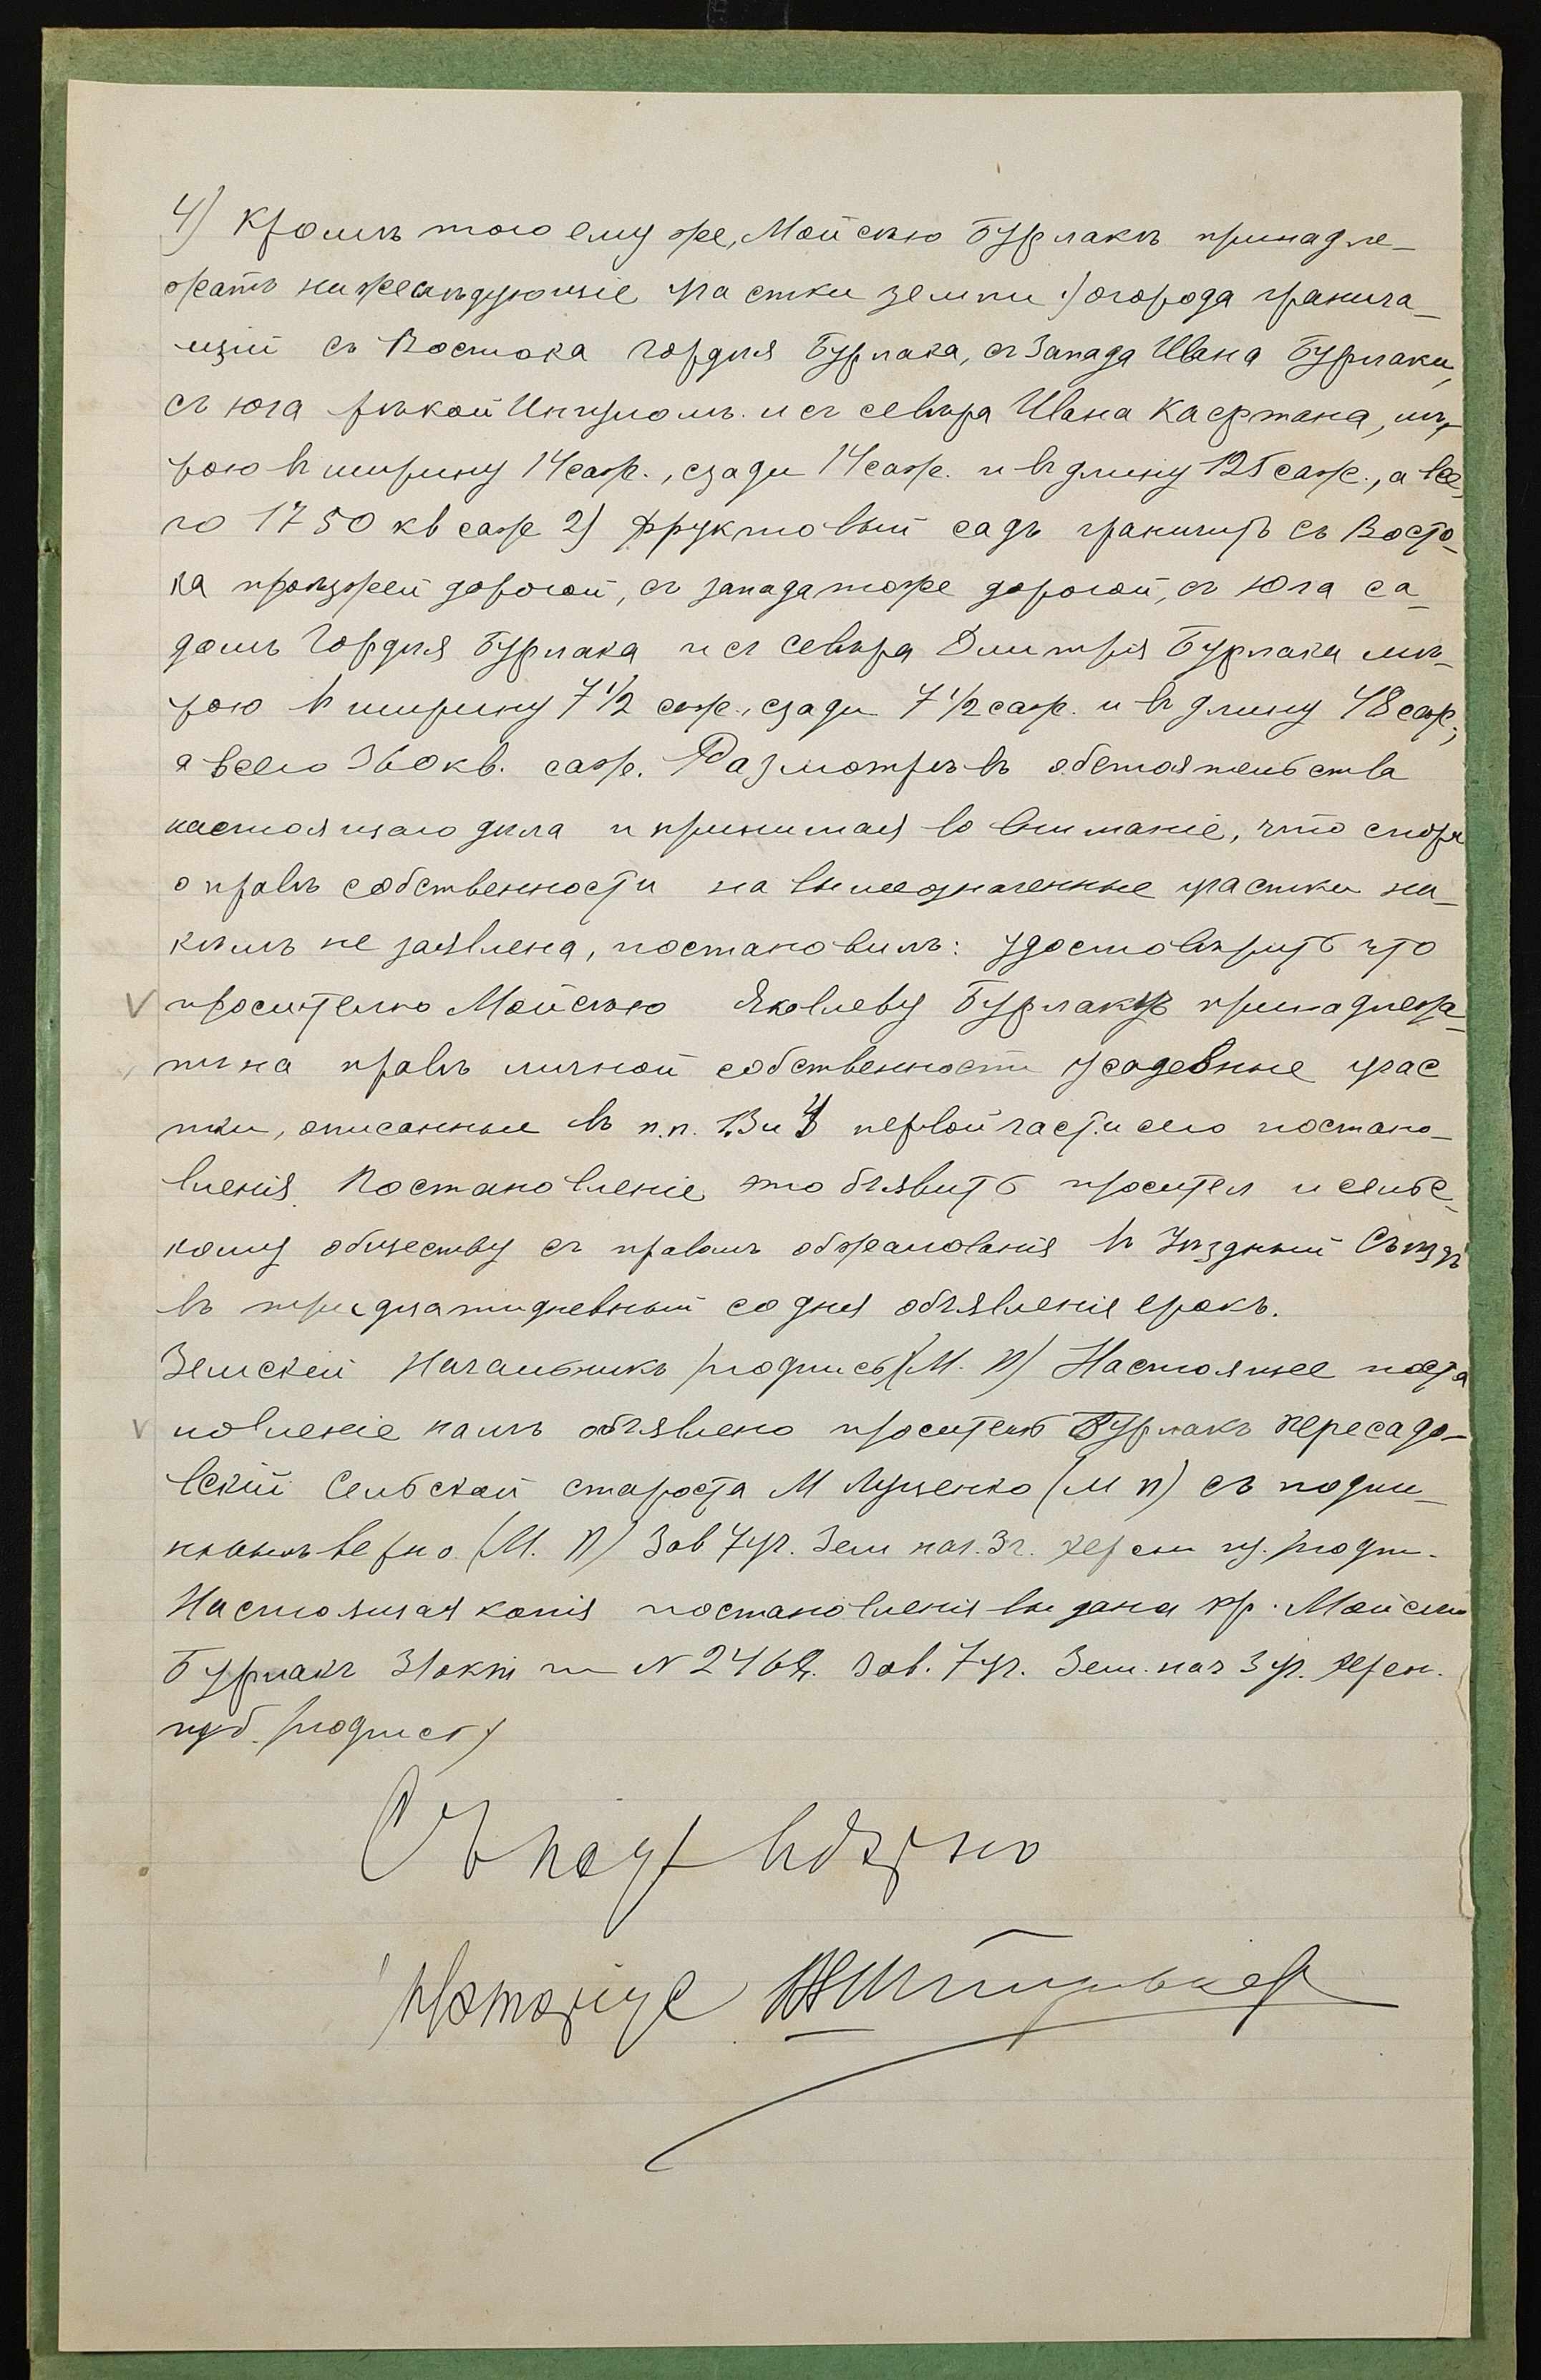 4) Кромѣ того ему же, Мойсѣю Бурлакѣ принадле-
жатъ нижеслѣдующіе участки земли 1) огорода гранича-
щій съ Востока Гордѣя Бурлака, съ Запада Ивана Бурлаки,
съ юга рѣкой Ингуломъ и съ севѣра Ивана Кафтана, мѣ-
рою въ ширину 14 саж., сзади 14 саж. и въ длину 125 саж., а все-
го 1750 кв саж 2) фруктовый садъ граничитъ съ Восто-
ка проѣзжей дорогой, съ запада тоже дорогой, съ Юга са-
домъ Гордѣя Бурлака и съ севѣра Дмитрія Бурлака мѣ-
рою въ ширину 7 1/2 саж., сзади 7 1/2 саж. и въ длину 48 саж.,
а всего 360 кв. саж. Разсмотрѣвъ обстоятельства
настоящаго дѣла и принимая во вниманіе, что спора
о правѣ собственности на вышеозначенные участки ни-
кѣмъ не заявлена, постановилъ: удостовѣрить что
просителю Мойсѣю Яковлеву Бурлакѣ принадлежа-
тъ на правѣ личной собственности усадебные учас
тки, описанные въ п.п. 1.3 и 4 первой части сего постано-
вленія. Постановленіе это объявить просител и сельс-
кому обществу съ правомъ обжалованія въ Уѣздный Съѣздъ
въ тридцатидневный со дня объявленія срокъ.
Земскій Начальникъ (подпись) (М. П) Настоящее поста
новленіе намъ объявлено проситель Бурлакъ Пересадо-
вскій Сельской староста М Луценко (М П) съ подли-
ннымъ вѣрно. (М. П) Зав 7 уч. Зем нач. 3 г. Херсон гу. подп.
Настоящая копія постановленія выдана кр. Мойсею
Бурлакъ 31 окт N 2462. Зав. 7 уч. Зем. нач 3 уч. Херсон.
губ. (подпись)
Съ под вѣрно
Нотаріус